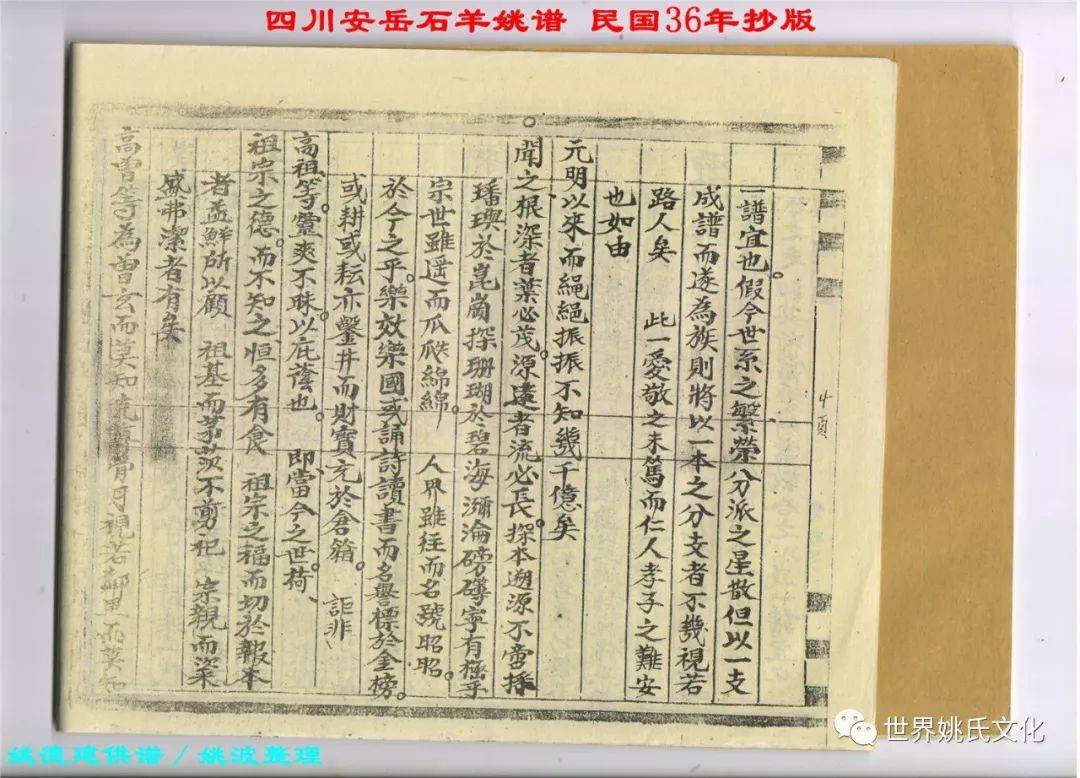 四川安岳石羊姚谱 民国36年抄版
4頁
一譜宜也。假今世系之繁榮分派之星散但以一支
成譜而遂為族則將以一本之分支者不幾視若
路人矣 此一愛敬之未篤而仁人孝子之難安
也如由
元明以來而繩繩振振不知幾千億矣
聞之根深者葉必茂。源遠者流必長。探本遡源不啻採
璠璵於崑崗探珊瑚於碧海瀰淪磅礴寧有極乎
宗世雖遥而瓜瓞綿綿。 人界雖往而名號昭昭。
於今之平。樂效樂國或誦詩讀書而名譽標於金榜。
或耕或耘亦鑿井而財寶充於倉箱。 詎非
高祖等靈爽不昧。以庇蔭也。 即當今之世。荷、
祖宗之德。而不知之恒多有食 祖宗之福而切於報本
者盖鮮所以顧 祖基而茅茨不剪祀 宗親而粢
盛弗潔者有矣
高曾等為曾玄而莫知 骨月視若 而莫知
姚德建供谱／姚波整理
世界姚氏文化